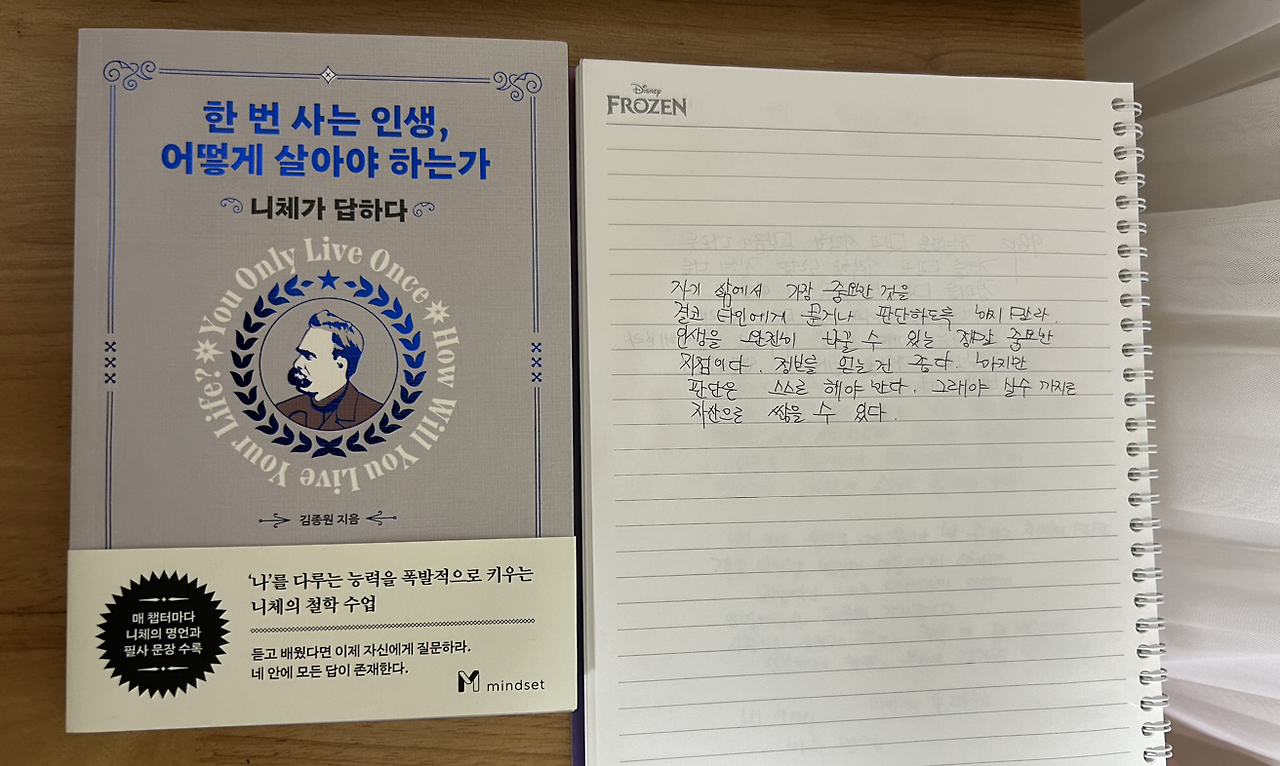 한 번 사는 인생,
어떻게 살아야 하는가
니체가 답하다
You Only Live Once
How Will You Live Your Life?
김종원 지음
매 챕터마다
니체의 명언과
필사 문장 수록
‘나’를 다루는 능력을 폭발적으로 키우는
니체의 철학 수업
듣고 배웠다면 이제 자신에게 질문하라.
네 안에 모든 답이 존재한다.
M mindset
Disney
FROZEN
자기 삶에서 가장 중요한 것을
결코 타인에게 묻거나 판단하도록 하지 말라.
인생을 완전히 바꿀 수 있는 정말 중요한
지점이다. 정보를 얻는 건 좋다. 하지만
판단은 스스로 해야 한다. 그래야 실수 까지도
자산으로 쌓을 수 있다.